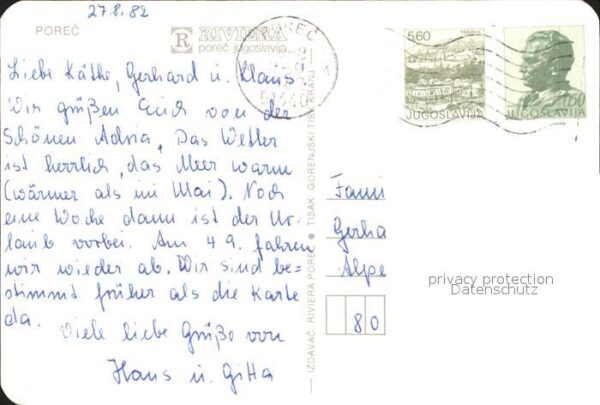 27.8.82
POREČ
RIVIERA
poreč jugoslavija
Liebe Käthe, Gerhard u. Klaus
Wir grüßen Euch von der
Schönen Adria, Das Wetter
ist herrlich, das Meer warm
(wärmer als im Mai). Noch
eine Woche dann ist der Ur-
laub vorbei. Am 4 9. fahren
wir wieder ab. Wir sind be-
stimmt früher als die Karte
da.
Viele liebe Grüße von
Hans u. Gitta
IZDAVAČ RIVIERA POREČ ● TISAK GORENJSKI TISK KRANJ
POREČ
51440
5.60
TRAVNIK
JUGOSLAVIJA
0.50
JUGOSLAVIJA
Fami
Gerha
Alpe
80
privacy protection
Datenschutz